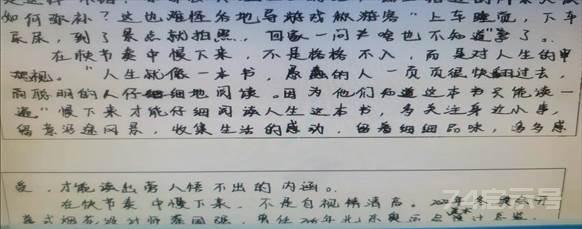 如何弥补？这也难怪各地导游戏称游客"上车睡觉，下车
尿尿，到了景点就拍照，回家一问啥也不知道"了。
在快节奏中慢下来，不是格格不入，而是对人生的审
视。"人生就像一本书，愚蠢的人一页页很快翻过去，
而聪明的人仔细地阅读。因为他们知道这本书只能读一
遍。"慢下来才能仔细阅读人生这本书，多关注身边小事，
留意沿途风景，收集生活的感动，留着细细品味，多多感
受，才能读出旁人悟不出的内涵。
在快节奏中慢下来，不是自视清高。2022年冬奥会开
幕式烟花设计师蔡国强，
74启示号